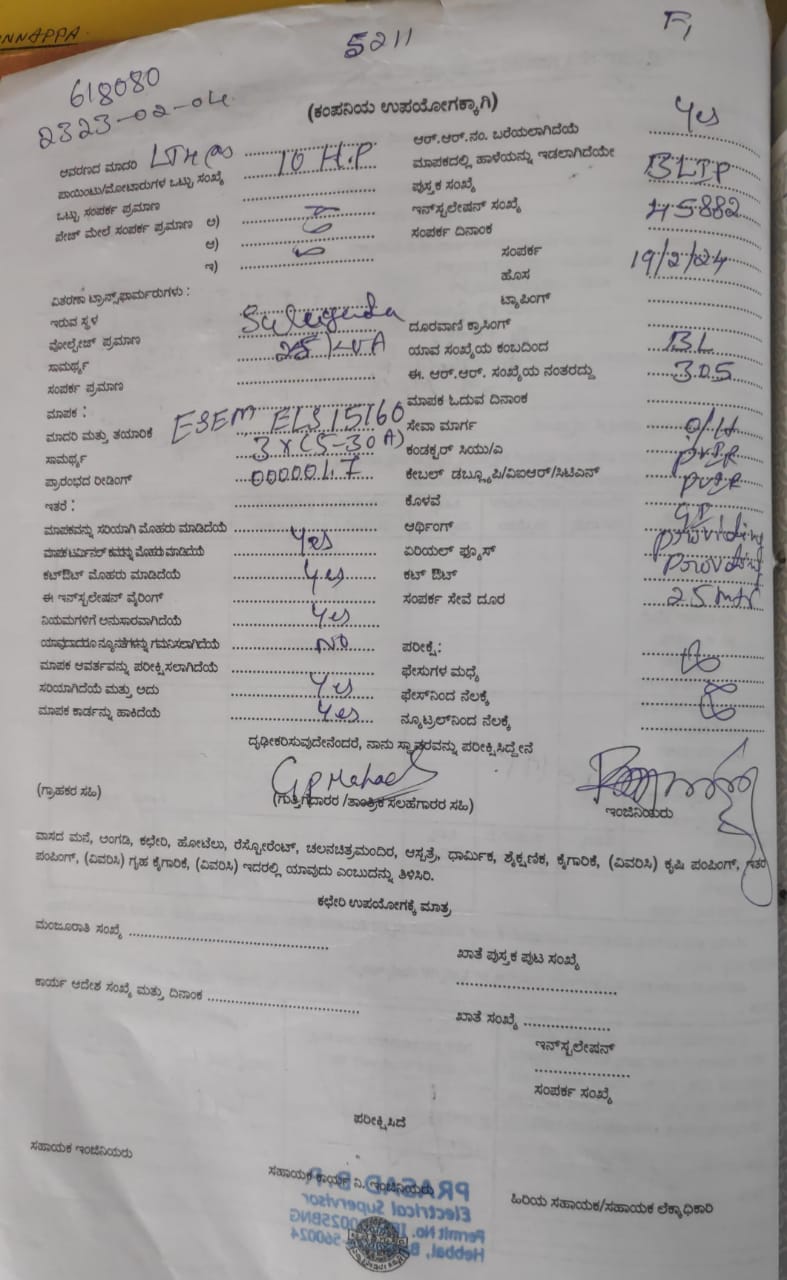 NNAPPA
5211
F1
618080
2323-02-04
(ಕಂಪನಿಯ ಉಪಯೋಗಕ್ಕಾಗಿ)
ಆವರಣದ ಮಾದರಿ LT4(a)
ಪಾಯಿಂಟು/ಮೋಟಾರುಗಳ ಒಟ್ಟು ಸಂಖ್ಯೆ 10 H.P
ಒಟ್ಟು ಸಂಪರ್ಕ ಪ್ರಮಾಣ
ಪೇಜ್ ಮೇಲೆ ಸಂಪರ್ಕ ಪ್ರಮಾಣ ಅ)
ಆ)
ಇ)
ವಿತರಣಾ ಟ್ರಾನ್ಸ್‌ಫಾರ್ಮರುಗಳು :
ಇರುವ ಸ್ಥಳ
ವೋಲ್ಟೇಜ್ ಪ್ರಮಾಣ 25 KVA
ಸಾಮರ್ಥ್ಯ
ಸಂಪರ್ಕ ಪ್ರಮಾಣ
ಮಾಪಕ :
ಮಾದರಿ ಮತ್ತು ತಯಾರಿಕೆ
ಸಾಮರ್ಥ್ಯ 3 X (5-30A)
ಪ್ರಾರಂಭದ ರೀಡಿಂಗ್ 0000047
ಇತರೆ :
ಮಾಪಕವನ್ನು ಸರಿಯಾಗಿ ಮೊಹರು ಮಾಡಿದೆಯೆ
ಮಾಪಕ ಟರ್ಮಿನಲ್ ಕವರನ್ನು ಮೊಹರು ಮಾಡಿದೆಯೆ Yes
ಕಟ್‌ಔಟ್ ಮೊಹರು ಮಾಡಿದೆಯೆ Yes
ಈ ಇನ್‌ಸ್ಟಲೇಷನ್ ವೈರಿಂಗ್
ನಿಯಮಗಳಿಗೆ ಅನುಸಾರವಾಗಿದೆಯೆ Yes
ಯಾವುದಾದರೂ ನ್ಯೂನತೆಗಳನ್ನು ಗಮನಿಸಲಾಗಿದೆಯೆ NO
ಮಾಪಕ ಆವರ್ತವನ್ನು ಪರೀಕ್ಷಿಸಲಾಗಿದೆಯೆ
ಸರಿಯಾಗಿದೆಯೆ ಮತ್ತು ಅದು Yes
ಮಾಪಕ ಕಾರ್ಡನ್ನು ಹಾಕಿದೆಯೆ Yes
ಆರ್.ಆರ್.ನಂ. ಬರೆಯಲಾಗಿದೆಯೆ Yes
ಮಾಪಕದಲ್ಲಿ ಹಾಳೆಯನ್ನು ಇಡಲಾಗಿದೆಯೇ
ಪುಸ್ತಕ ಸಂಖ್ಯೆ BLIP
ಇನ್‌ಸ್ಟಲೇಷನ್ ಸಂಖ್ಯೆ 45882
ಸಂಪರ್ಕ ದಿನಾಂಕ
ಸಂಪರ್ಕ 19/2/24
ಹೊಸ
ಟ್ಯಾಪಿಂಗ್
ದೂರವಾಣಿ ಕ್ರಾಸಿಂಗ್
ಯಾವ ಸಂಖ್ಯೆಯ ಕಂಬದಿಂದ BL
ಈ. ಆರ್.ಆರ್. ಸಂಖ್ಯೆಯ ನಂತರದ್ದು 305
ಮಾಪಕ ಓದುವ ದಿನಾಂಕ
ಸೇವಾ ಮಾರ್ಗ O/H
ಕಂಡಕ್ಟರ್ ಸಿಯು/ಎ
ಕೇಬಲ್ ಡಬ್ಲ್ಯೂಪಿ/ವಿಐಆರ್/ಸಿಟಿಎಸ್
ಕೊಳವೆ GI
ಆರ್ಥಿಂಗ್ providing
ಏರಿಯಲ್ ಫ್ಯೂಸ್ providing
ಕಟ್ ಔಟ್
ಸಂಪರ್ಕ ಸೇವೆ ದೂರ 25 mtr
ಪರೀಕ್ಷೆ:
ಫೇಸುಗಳ ಮಧ್ಯೆ
ಫೇಸ್‌ನಿಂದ ನೆಲಕ್ಕೆ
ನ್ಯೂಟ್ರಲ್‌ನಿಂದ ನೆಲಕ್ಕೆ
ದೃಢೀಕರಿಸುವುದೇನೆಂದರೆ, ನಾನು ಸ್ಥಾವರವನ್ನು ಪರೀಕ್ಷಿಸಿದ್ದೇನೆ
(ಗ್ರಾಹಕರ ಸಹಿ)
(ಗುತ್ತಿಗೆದಾರರ /ತಾಂತ್ರಿಕ ಸಲಹೆಗಾರರ ಸಹಿ)
ಇಂಜಿನಿಯರು
ವಾಸದ ಮನೆ, ಅಂಗಡಿ, ಕಛೇರಿ, ಹೋಟೆಲು, ರೆಸ್ಟೋರೆಂಟ್, ಚಲನಚಿತ್ರಮಂದಿರ, ಆಸ್ಪತ್ರೆ, ಧಾರ್ಮಿಕ, ಶೈಕ್ಷಣಿಕ, ಕೈಗಾರಿಕೆ, (ವಿವರಿಸಿ) ಕೃಷಿ ಪಂಪಿಂಗ್, ಇತರ
ಪಂಪಿಂಗ್, (ವಿವರಿಸಿ) ಗೃಹ ಕೈಗಾರಿಕೆ, (ವಿವರಿಸಿ) ಇದರಲ್ಲಿ ಯಾವುದು ಎಂಬುದನ್ನು ತಿಳಿಸಿರಿ.
ಕಛೇರಿ ಉಪಯೋಗಕ್ಕೆ ಮಾತ್ರ
ಮಂಜೂರಾತಿ ಸಂಖ್ಯೆ
ಖಾತೆ ಪುಸ್ತಕ ಪುಟ ಸಂಖ್ಯೆ
ಕಾರ್ಯ ಆದೇಶ ಸಂಖ್ಯೆ ಮತ್ತು ದಿನಾಂಕ
ಖಾತೆ ಸಂಖ್ಯೆ
ಇನ್‌ಸ್ಟಲೇಷನ್
ಸಂಪರ್ಕ ಸಂಖ್ಯೆ
ಪರೀಕ್ಷಿಸಿದೆ
ಸಹಾಯಕ ಇಂಜಿನಿಯರು
ಸಹಾಯಕ ಕಾರ್ಯ ನಿ. ಇಂಜಿನಿಯರು
ಹಿರಿಯ ಸಹಾಯಕ/ಸಹಾಯಕ ಲೆಕ್ಕಾಧಿಕಾರಿ
PRASAD B.P.
Electrical Supervisor
Permit No.
Hebbal,